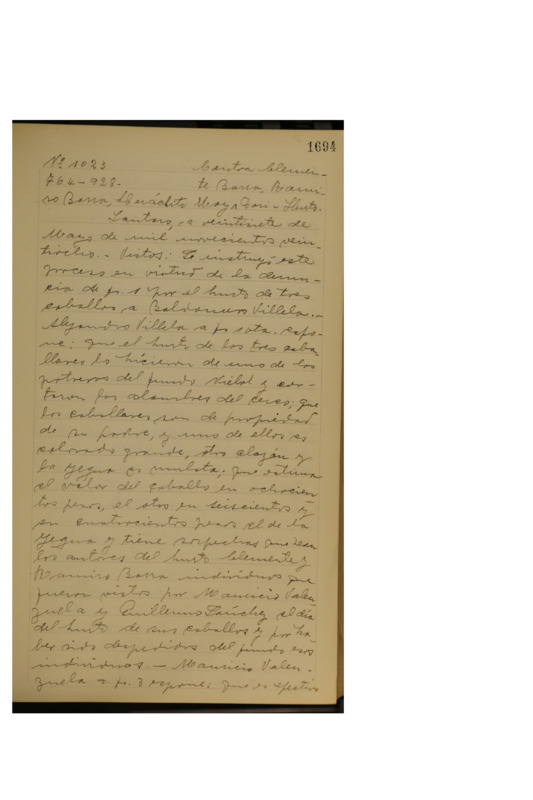 1694
Nº 1023 Contra Clemen-
764-928- te Barra, Rami-
ro Barra, Heráclito Moya Hurto.
Lautaro, a veintisiete de
Mayo de mil novecientos vein-
tiocho. - Vistos: Se instruyó este
proceso en virtud de la denun-
cia de fs. 1 por el hurto de tres
caballos a Baldomero Villela. -
Alejandro Villela a fs vta. expo-
ne: que el hurto de los tres caba
llares lo hicieron de uno de los
potreros del fundo y cor-
taron los alambres del cerco; que
los caballares son de propiedad
de su padre, y uno de ellos es
colorado grande, otro alazán y
la yegua es mulata; que estima
el valor del caballo en ochocien
tos pesos, el otro en seiscientos y
en cuatrocientos pesos el de la
yegua y tiene sospechas que sean
los autores del hurto Clemente y
Ramiro Barra individuos que
fueron vistos por Mauricio Valen
zuela y Guillermo Sánchez el día
del hurto de sus caballos y por ha
ber sido despedidos del fundo esos
individuos. - Mauricio Valen-
zuela a fs. 3 expone: que es efectivo